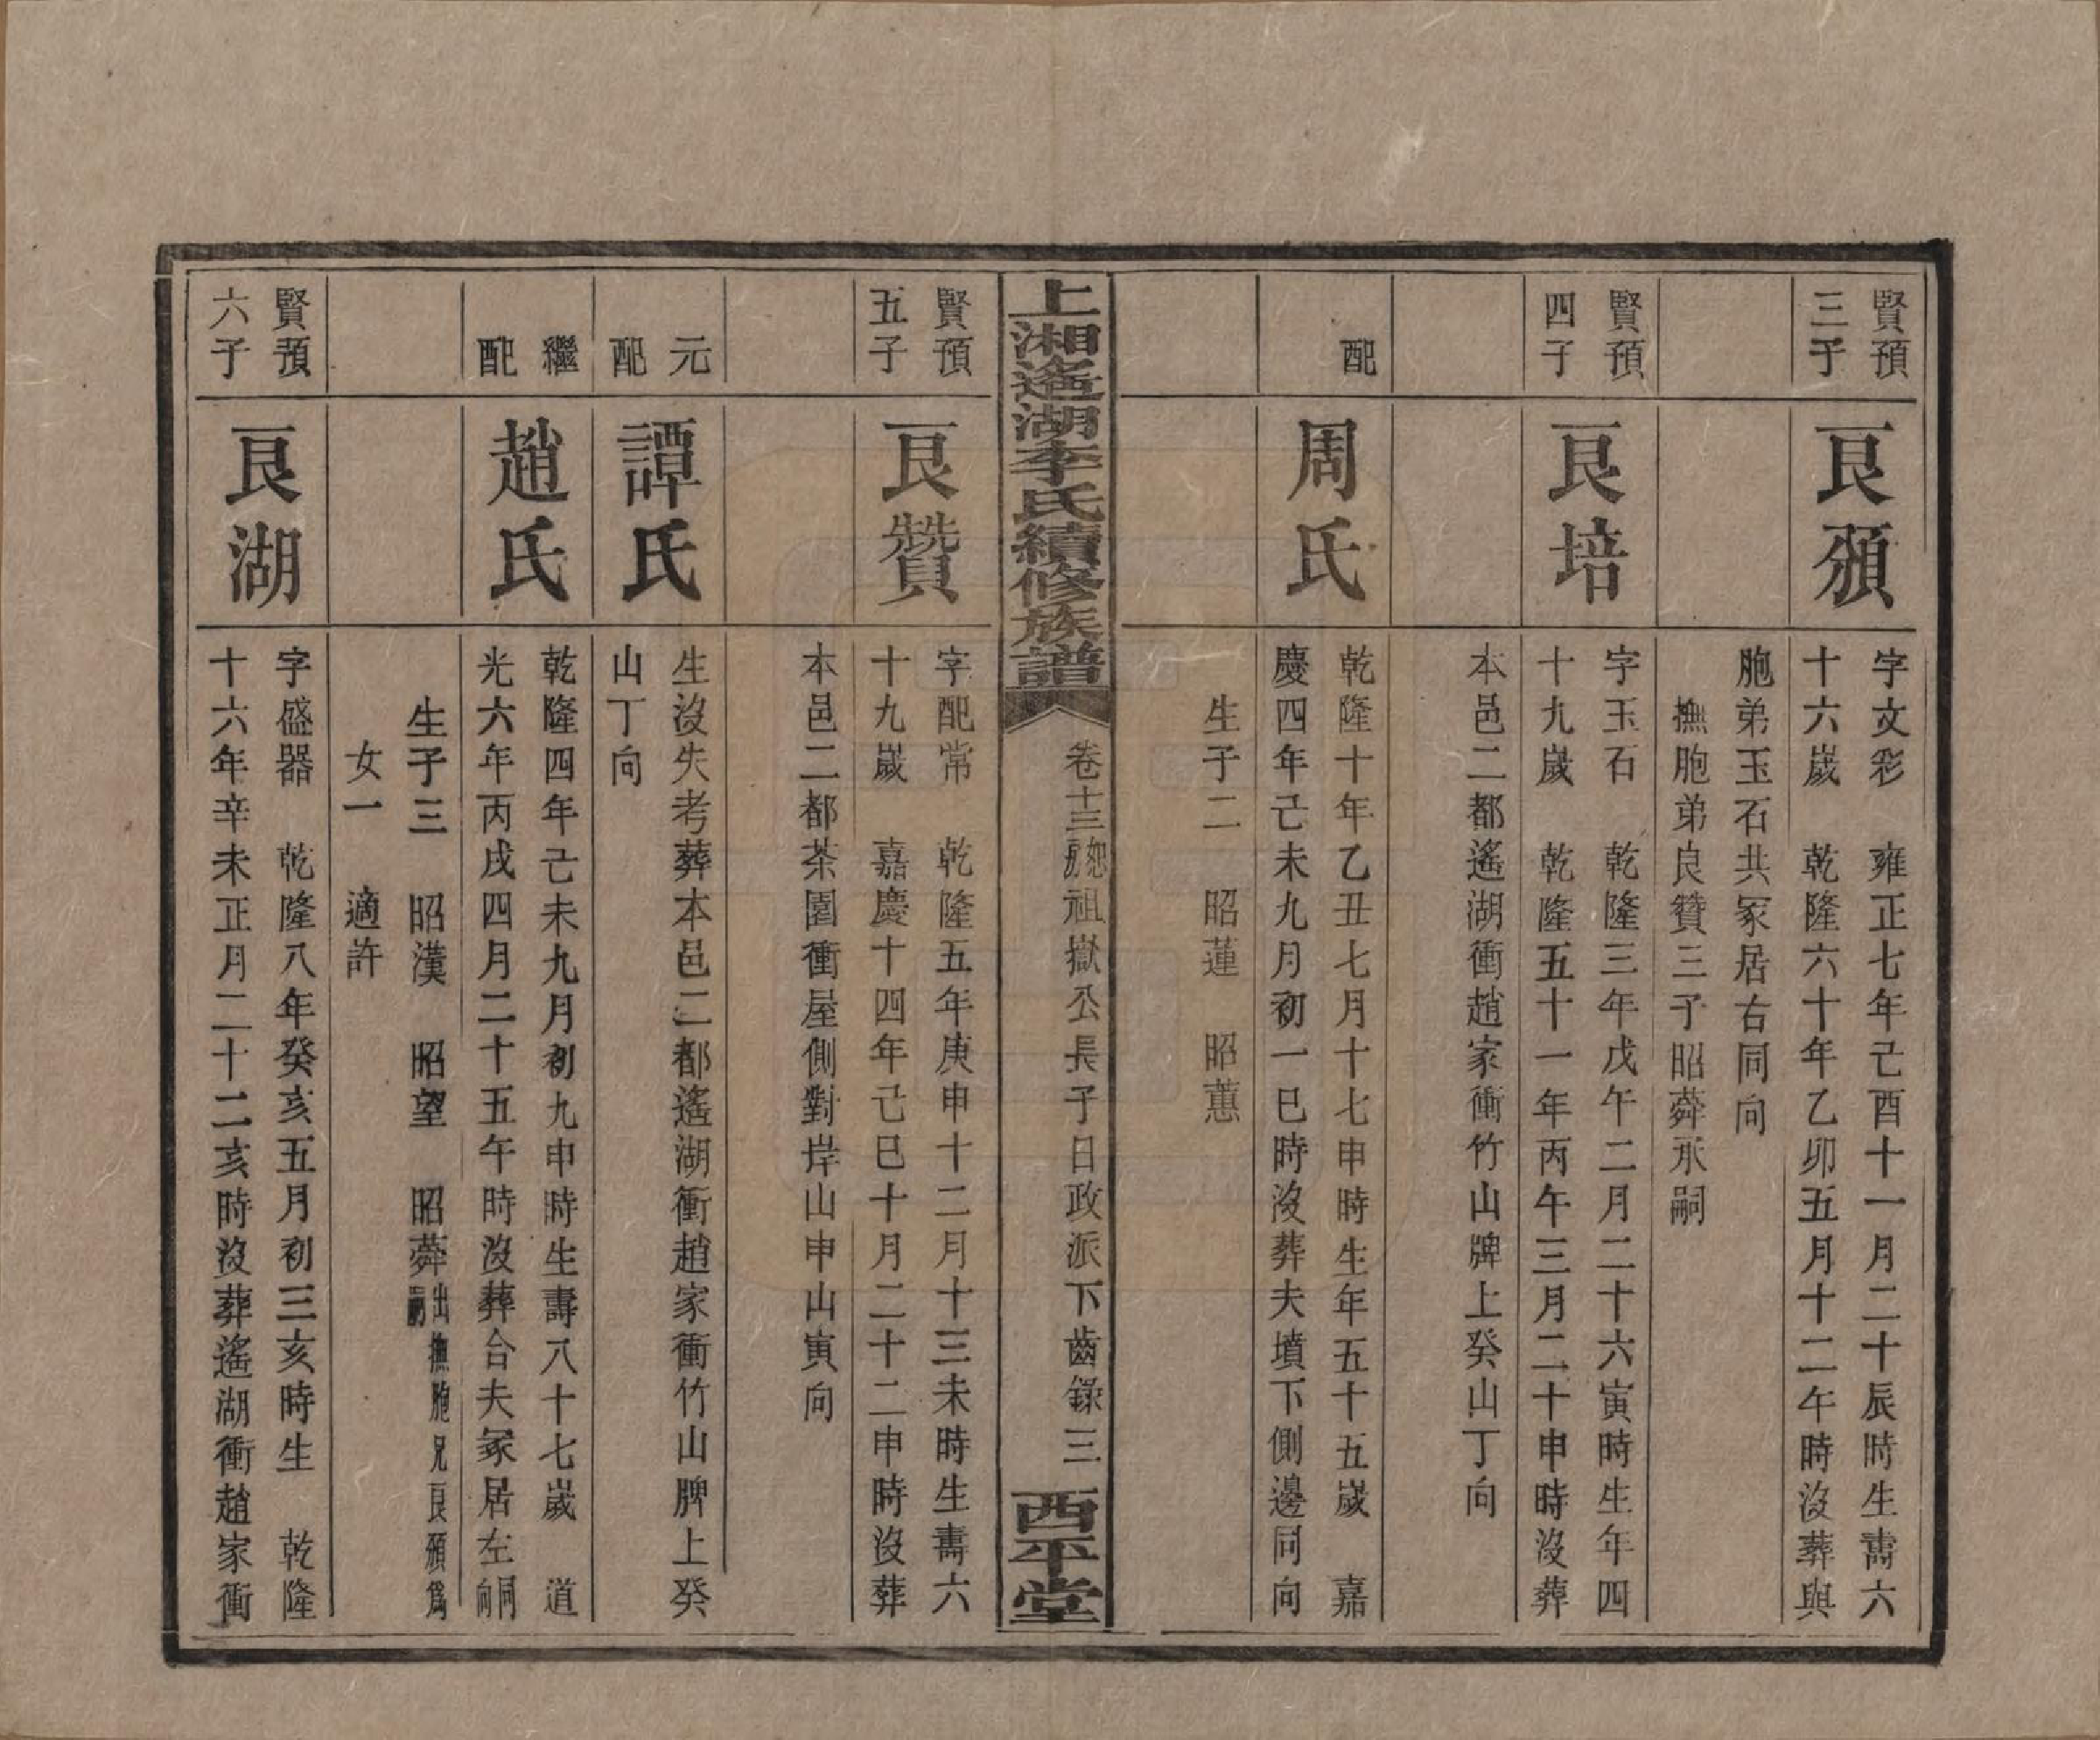 賢預
三子
良頒
字文彩　雍正七年己酉十一月二十辰時生壽六
十六歲　乾隆六十年乙卯五月十二午時沒葬與
胞弟玉石共冢居右同向
撫胞弟良贊三子昭粦承嗣
賢預
四子
良培
字玉石　乾隆三年戊午二月二十六寅時生年四
十九歲　乾隆五十一年丙午三月二十申時沒葬
本邑二都遙湖衝趙家衝竹山牌上癸山丁向
配
周氏
乾隆十年乙丑七月十七申時生年五十五歲　嘉
慶四年己未九月初一巳時沒葬夫墳下側邊同向
生子二　昭蓮　昭蕙
上湘遙湖李氏續修族譜
卷十三
恕房
祖嶽公長子日政派下齒錄三
西平堂
賢預
五子
良贊
字配常　乾隆五年庚申十二月十三未時生壽六
十九歲　嘉慶十四年己巳十月二十二申時沒葬
本邑二都茶園衝屋側對岸山申山寅向
元
配
譚氏
生沒失考葬本邑二都遙湖衝趙家衝竹山牌上癸
山丁向
繼
配
趙氏
乾隆四年己未九月初九申時生壽八十七歲　道
光六年丙戌四月二十五午時沒葬合夫冢居左同向
生子三　昭漢　昭望　昭粦出撫胞兄良頒為嗣
女一　適許
賢預
六子
良湖
字盛器　乾隆八年癸亥五月初三亥時生　乾隆
十六年辛未正月二十二亥時沒葬遙湖衝趙家衝